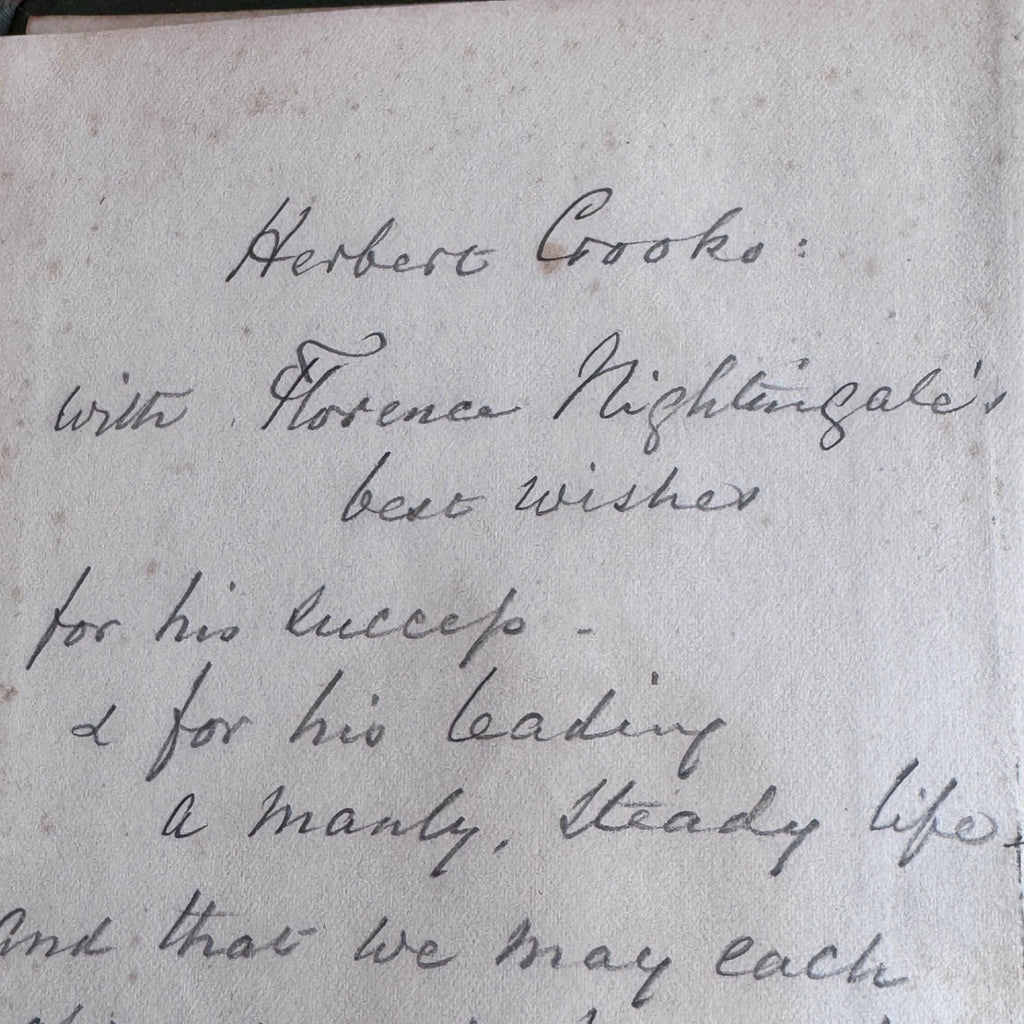 Herbert Crooks:
with Florence Nightingale's
best wishes
for his success -
& for his leading
a manly, steady life
and that we may each